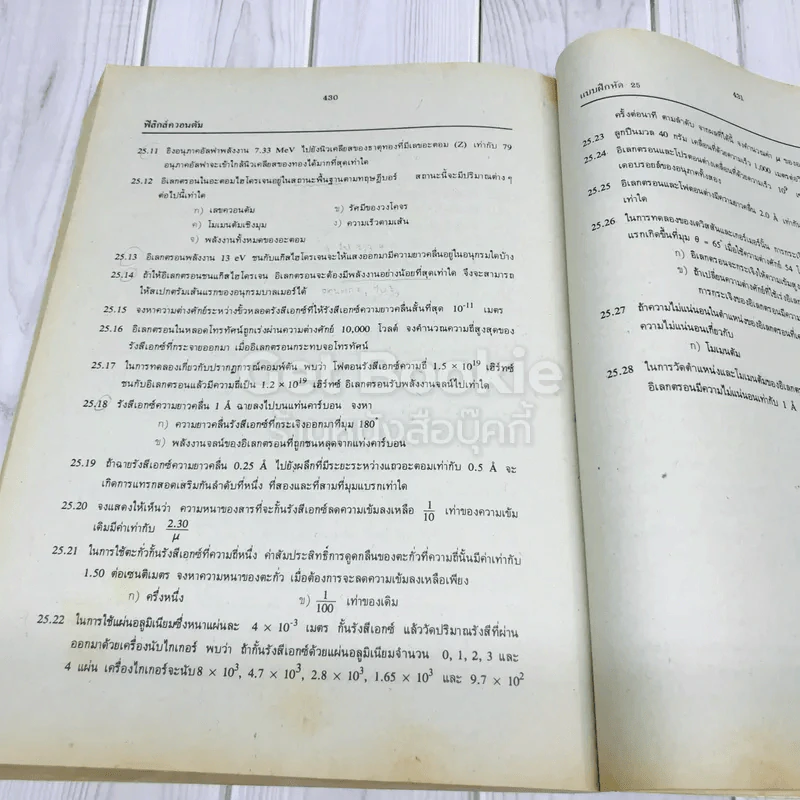 430
ฟิสิกส์ควอนตัม
25.11 ยิงอนุภาคอัลฟาพลังงาน 7.33 MeV ไปยังนิวเคลียสของธาตุทองที่มีเลขอะตอม (Z) เท่ากับ 79
อนุภาคอัลฟาจะเข้าใกล้นิวเคลียสของทองได้มากที่สุดเท่าใด
25.12 อิเลกตรอนในอะตอมไฮโดรเจนอยู่ในสถานะพื้นฐานตามทฤษฎีบอร์ สถานะนี้จะมีปริมาณต่าง ๆ
ต่อไปนี้เท่าใด
ก) เลขควอนตัม ข) รัศมีของวงโคจร
ค) โมเมนตัมเชิงมุม ง) ความเร็วตามเส้น
จ) พลังงานทั้งหมดของอะตอม
25.13 อิเลกตรอนพลังงาน 13 eV ชนกับแก๊สไฮโดรเจน จะให้แสงออกมามีความยาวคลื่นอยู่ในอนุกรมใดบ้าง
25.14 ถ้าให้อิเลกตรอนชนแก๊สไฮโดรเจน อิเลกตรอนจะต้องมีพลังงานอย่างน้อยที่สุดเท่าใด จึงจะสามารถ
ให้สเปกตรัมเส้นแรกของอนุกรมบาลเมอร์ได้
25.15 จงหาความต่างศักย์ระหว่างขั้วหลอดรังสีเอกซ์ที่ให้รังสีเอกซ์ความยาวคลื่นสั้นที่สุด 10⁻¹¹ เมตร
25.16 อิเลกตรอนในหลอดโทรทัศน์ถูกเร่งผ่านความต่างศักย์ 10,000 โวลต์ จงคำนวณความถี่สูงสุดของ
รังสีเอกซ์ที่กระจายออกมา เมื่ออิเลกตรอนกระทบจอโทรทัศน์
25.17 ในการทดลองเกี่ยวกับปรากฏการณ์คอมพ์ตัน พบว่า โฟตอนรังสีเอกซ์ความถี่ 1.5 × 10¹⁹ เฮิร์ทซ์
ชนกับอิเลกตรอนแล้วมีความถี่เป็น 1.2 × 10¹⁹ เฮิร์ทซ์ อิเลกตรอนรับพลังงานจลน์ไปเท่าใด
25.18 รังสีเอกซ์ความยาวคลื่น 1 Å ฉายลงไปบนแท่นคาร์บอน จงหา
ก) ความยาวคลื่นรังสีเอกซ์ที่กระเจิงออกมาที่มุม 180°
ข) พลังงานจลน์ของอิเลกตรอนที่ถูกชนหลุดจากแท่งคาร์บอน
25.19 ถ้าฉายรังสีเอกซ์ความยาวคลื่น 0.25 Å ไปยังผลึกที่มีระยะระหว่างแถวอะตอมเท่ากับ 0.5 Å จะ
เกิดการแทรกสอดเสริมกันลำดับที่หนึ่ง ที่สองและที่สามที่มุมแบรกเท่าใด
25.20 จงแสดงให้เห็นว่า ความหนาของสารที่จะกั้นรังสีเอกซ์ลดความเข้มลงเหลือ 1/10 เท่าของความเข้ม
เดิมมีค่าเท่ากับ 2.30/μ
25.21 ในการใช้ตะกั่วกั้นรังสีเอกซ์ที่ความถี่หนึ่ง ค่าสัมประสิทธิ์การดูดกลืนของตะกั่วที่ความถี่นั้นมีค่าเท่ากับ
1.50 ต่อเซนติเมตร จงหาความหนาของตะกั่ว เมื่อต้องการจะลดความเข้มลงเหลือเพียง
ก) ครึ่งหนึ่ง ข) 1/100 เท่าของเดิม
25.22 ในการใช้แผ่นอลูมิเนียมซึ่งหนาแผ่นละ 4 × 10⁻³ เมตร กั้นรังสีเอกซ์ แล้ววัดปริมาณรังสีที่ผ่าน
ออกมาด้วยเครื่องนับไกเกอร์ พบว่า ถ้ากั้นรังสีเอกซ์ด้วยแผ่นอลูมิเนียมจำนวน 0, 1, 2, 3 และ
4 แผ่น เครื่องไกเกอร์จะนับ 8 × 10³, 4.7 × 10³, 2.8 × 10³, 1.65 × 10³ และ 9.7 × 10²
Get Bookie
ร้านหนังสือบุ๊คกี้
แบบฝึกหัด 25 431
ครั้งต่อนาที ตามลำดับ จากผลที่ได้นี้ จงคำนวณค่า μ ของ
25.23 ลูกปืนมวล 40 กรัม เคลื่อนที่ด้วยความเร็ว 1,000 เมตรต่อ
25.24 อิเลกตรอนและโปรตอนต่างเคลื่อนที่ด้วยความเร็ว
เดอบรอยล์ของอนุภาคทั้งสอง
25.25 อิเลกตรอนและโฟตอนต่างมีความยาวคลื่น 2.0 Å เท่ากัน
เท่าใด
25.26 ในการทดลองของเดวิสสันและเกอร์เมอร์นั้น การกระเจิง
แรกเกิดขึ้นที่มุม θ = 65° เมื่อใช้ความต่างศักย์ 54
ก) อิเลกตรอนจะกระเจิงให้ความเข้มสูง
ข) ถ้าเปลี่ยนความต่างศักย์ที่ใช้เร่งอิเลกตรอน
การกระเจิงของอิเลกตรอนมีความ
25.27 ถ้าความไม่แน่นอนในตำแหน่งของอิเลกตรอนที่
ความไม่แน่นอนเกี่ยวกับ
ก) โมเมนตัม
25.28 ในการวัดตำแหน่งและโมเมนตัมของอิเลกตรอน
อิเลกตรอนมีความไม่แน่นอนเท่ากับ 1 Å